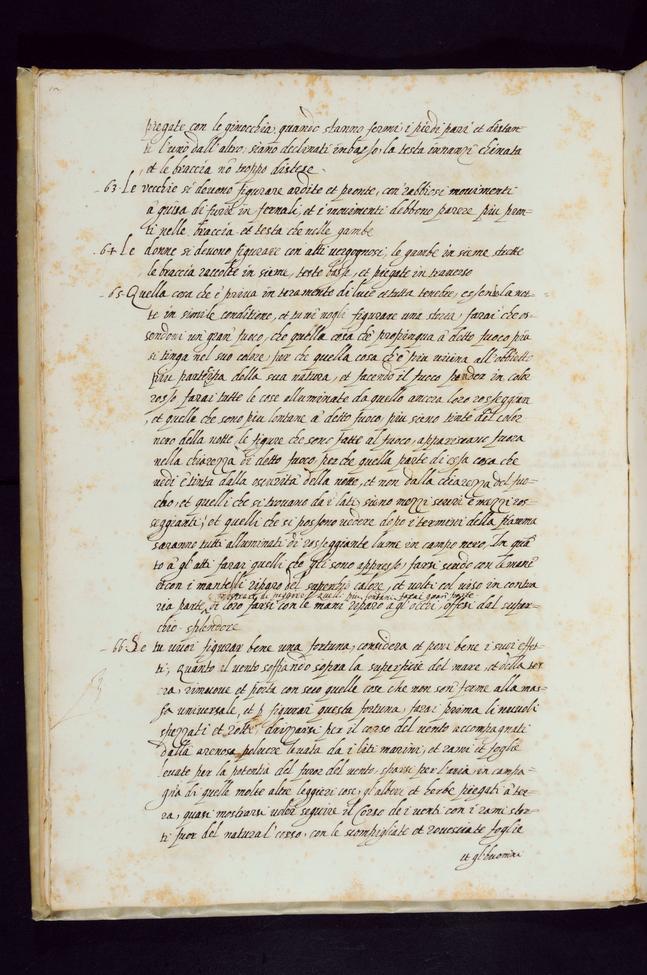 piegate con le ginocchia, quando stanno fermi, i piedi pari et distan=
ti l'uno dall'altro, siano declinati in basso, la testa innanzi chinata
et le braccia nõ troppo distese.
63 Le vecchie si deuono figurare ardite et pronte, con rabbiosi mouimenti
à guisa di furie infernali, et i mouimenti debbono parere piu pron=
ti nelle braccia et testa che nelle gambe
64 Le donne si deuono figurare con atti vergognosi, le gambe insieme strette
le braccia raccolte insieme, teste basse, et piegate in trauerso
65 Quella cosa che è priua interamente di luce è tutta tenebre, essendo la not=
te in simile conditione, et tu ui uogli figurare una storia farai che es=
sendoui un gran' fuoco, che quella cosa ch'è propinqua à detto fuoco piu
si tinga nel suo colore, per che quella cosa ch'è piu uicina all'obbietto
piu partecipa della sua natura, et facendo il fuoco pender in color
rosso farai tutte le cose alluminate da quello ancora loro rosseggiare
et quelle che sono piu lontane à detto fuoco, piu siano tinte del color
nero della notte le figure che sono fatte al fuoco, appariscano scure
nella chiarezza di detto fuoco, perche quella parte di essa cosa che
uedi è tinta dalla oscurità della notte, et non dalla chiarezza del fuo=
cho, et quelli che si trouano da i lati, sieno mezzi scuri e mezzi ros=
seggianti, et quelli che si possono uedere dopo i termini della fiamma
saranno tutti alluminati di rosseggiante lume in campo nero. In quã=
to à gl'atti farai quelli che gli sono appresso, farsi scudo con le mani
et con i mantelli riparo del superchio calore, et uolti col uiso in contra
mostrare di fuggire, quelli piu lontani farai gran parte
ria parte di loro farsi con le mani riparo à gl'occhi, offesi dal super=
chio splendore
66 Se tu uuoi figurar bene una fortuna, considera et poni bene i suoi effet=
ti, quanto il uento soffiando sopra la superficie del mare, et della ter=
ra, rimuoue et porta con seco quelle cose che non son' ferme alla mas=
sa uniuersale, et p figurar questa fortuna, farai prima li nuuoli
spezzati et rotti drizzarsi per il corso del uento accompagnati
dalla arenosa poluere leuata da i liti marini, et rami et foglie
leuate per la potentia del furor del uento, sparsi per l'aria, in compa=
gnia di quelle molte altre leggieri cose, gl'alberi et herbe piegati à ter=
ra, quasi mostrarsi uoler seguire il corso de i uenti con i rami stor=
ti fuor del natural corso, con le scompigliate et rouesciate foglie
et gl'huomini